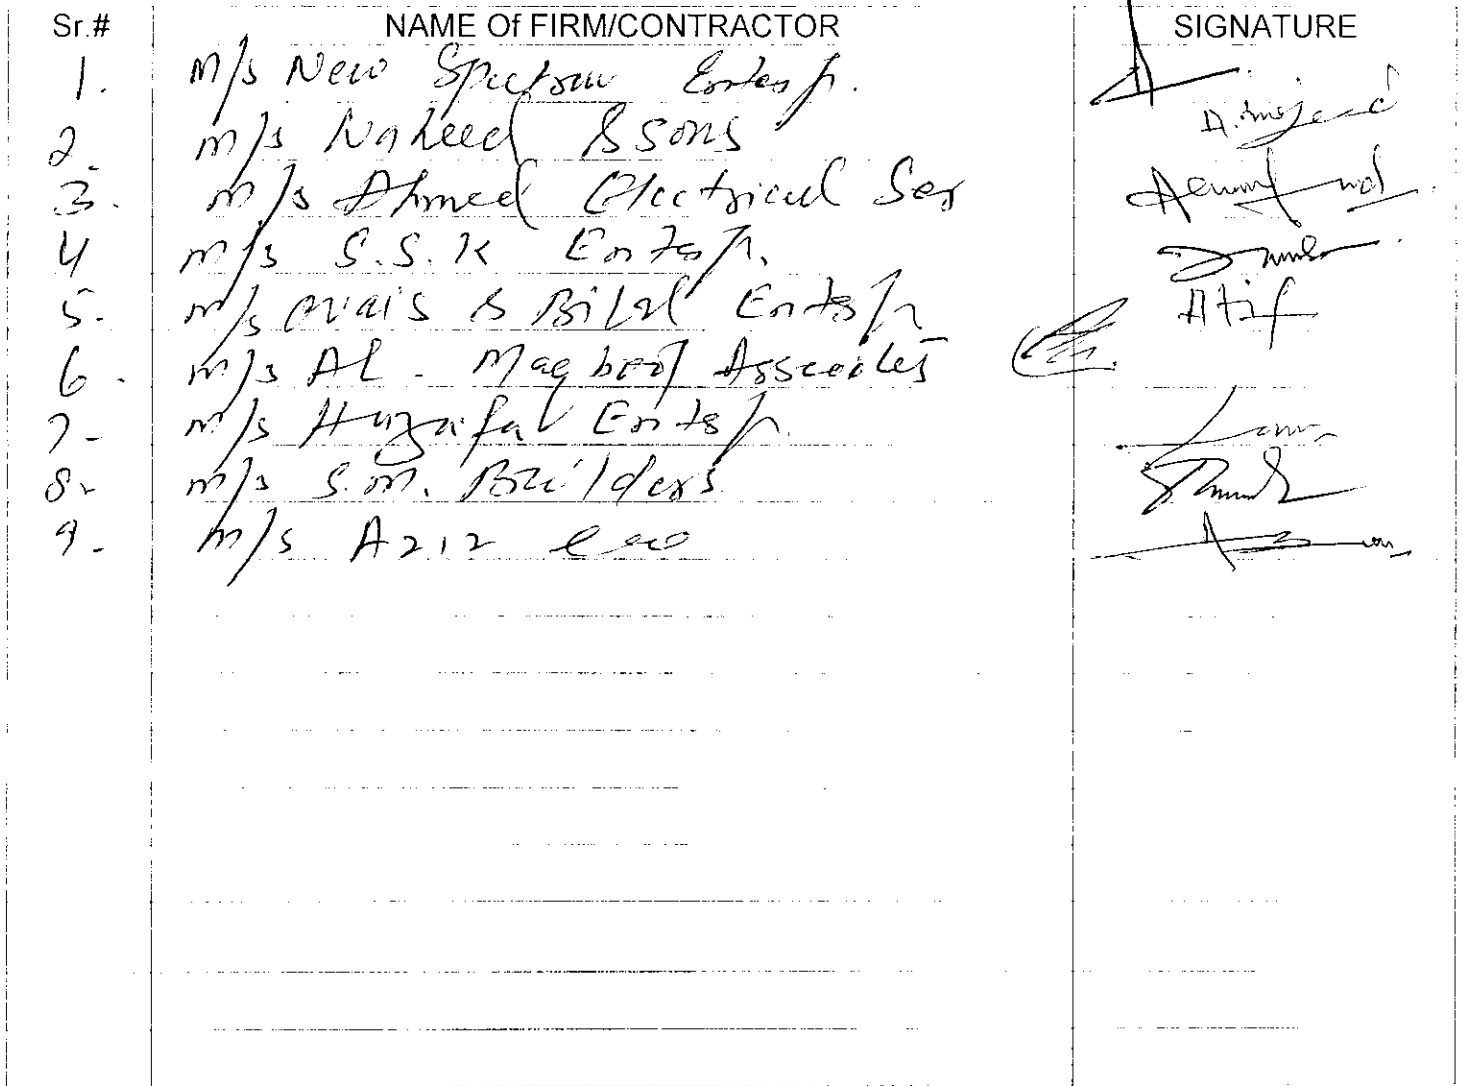 Sr.# NAME Of FIRM/CONTRACTOR SIGNATURE
1. M/s New Spectrum Enterp.
2. m/s Naheed & Sons A.Amjad
3. m/s Ahmed Electrical Ser
4 m/s S.S.K Enterp.
5. m/s Owais & Bilal Enterp Atif
6. m/s AL. Maqbool Associates
7- m/s Huzaifa Enterp.
8- m/s S.M. Builders
9- m/s Aziz